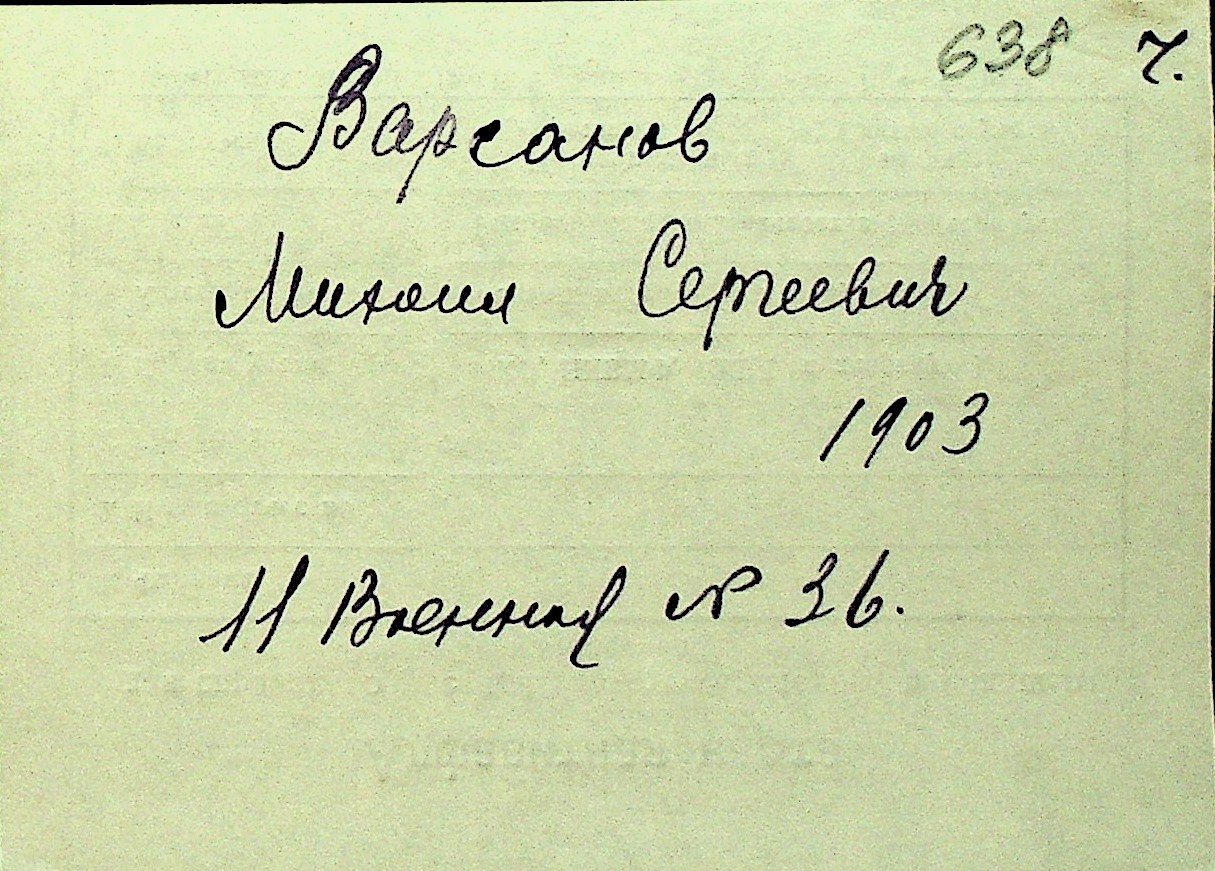 638 ч.
Варсанов
Михаил Сергеевич
1903
11 Военная № 36.